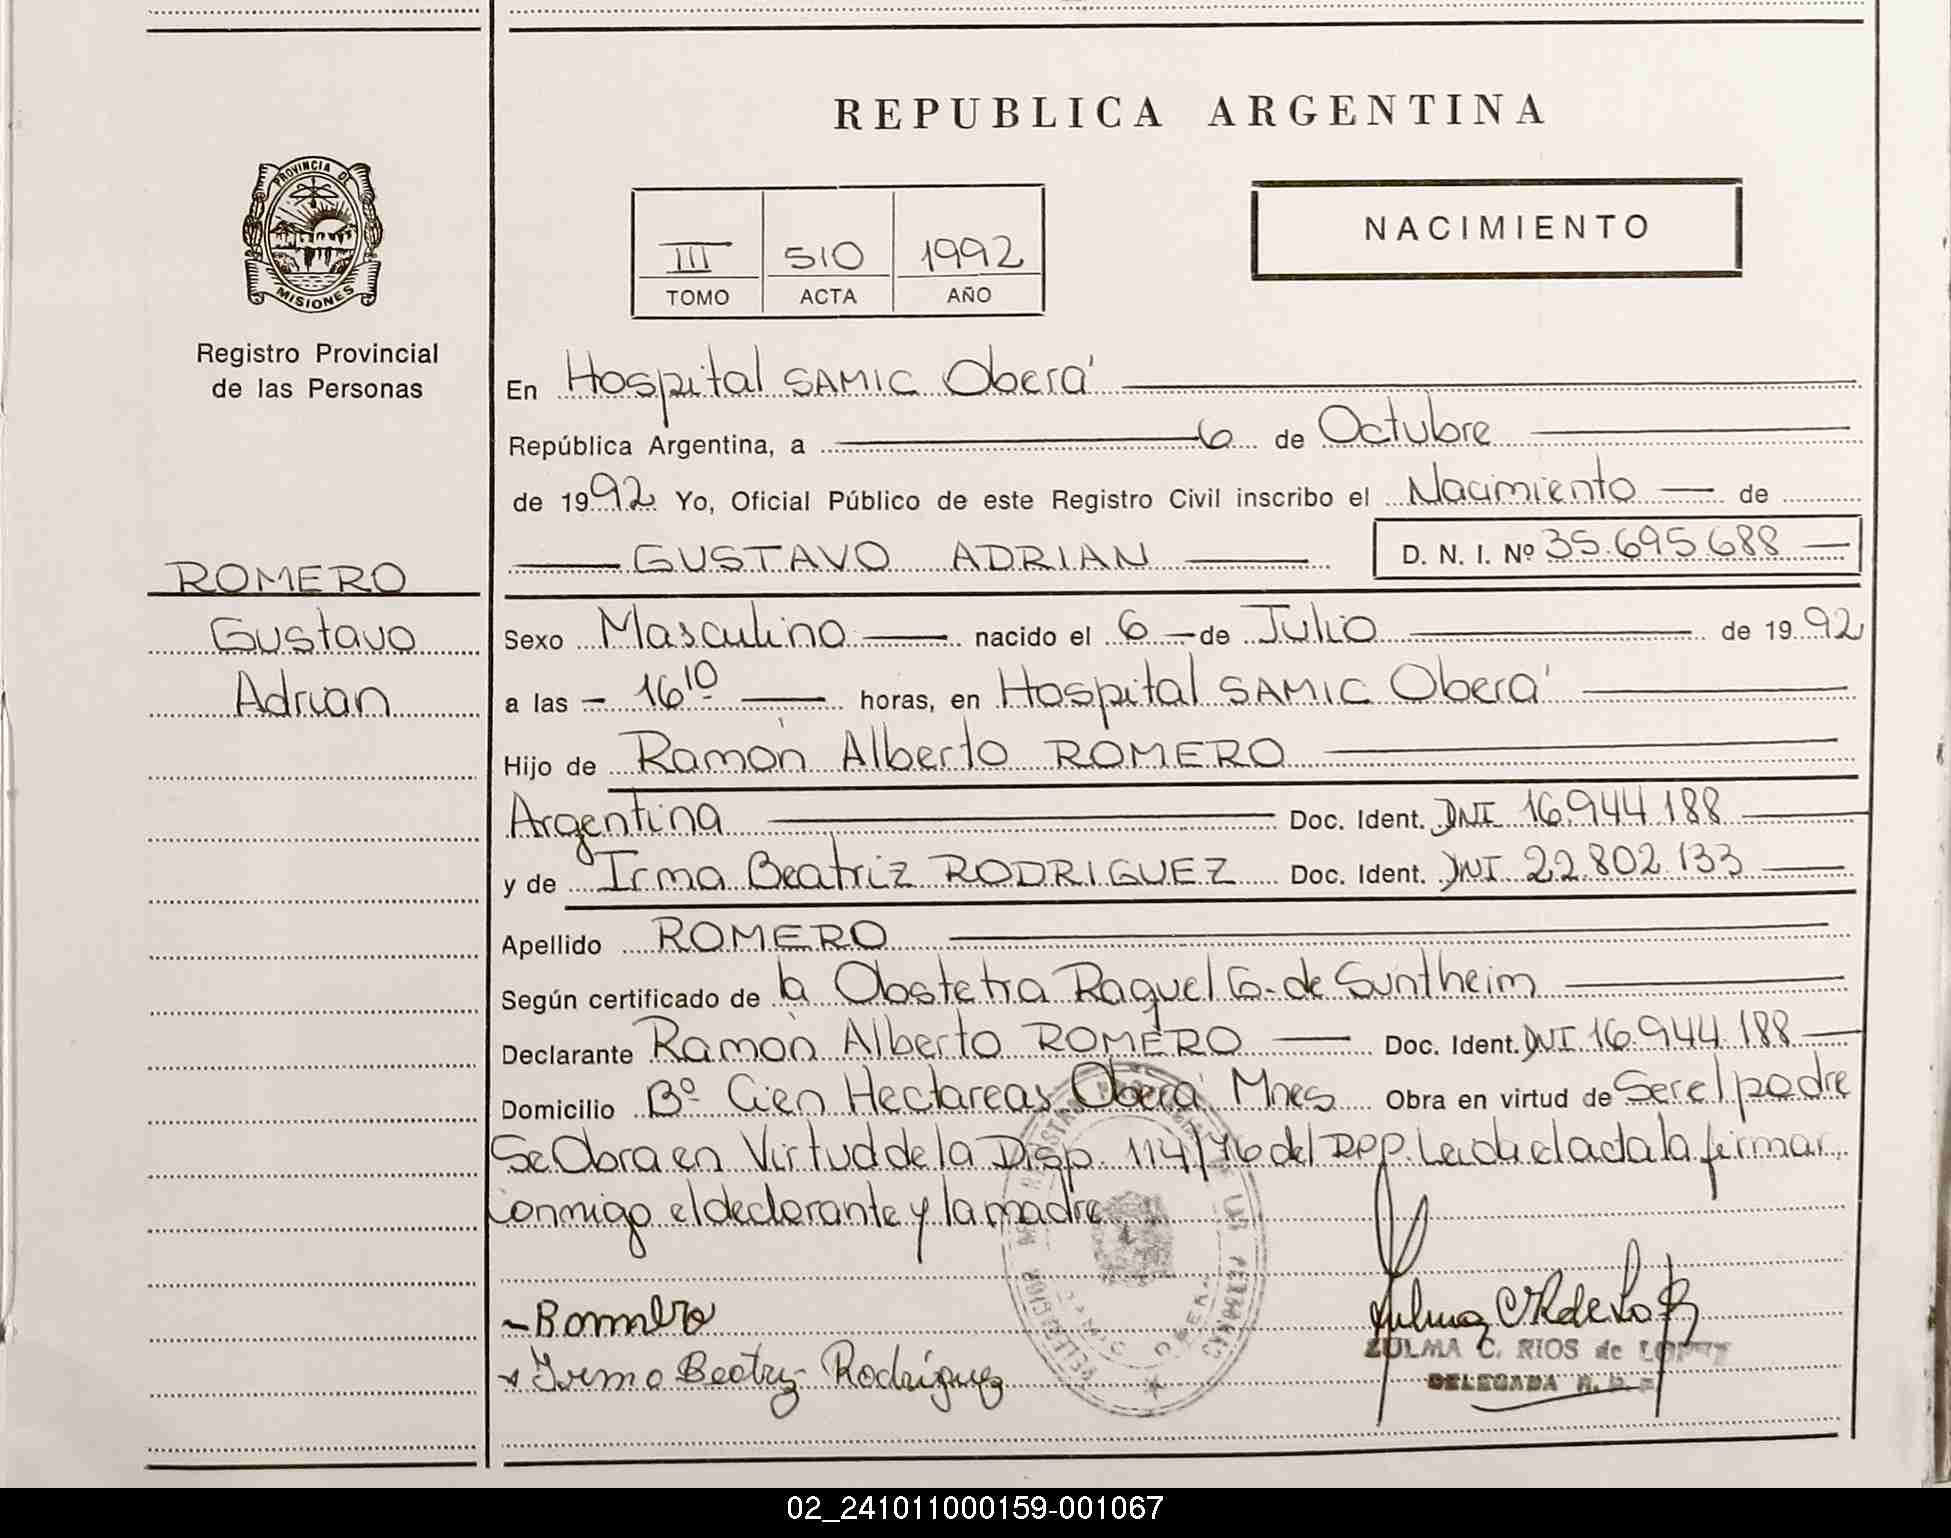 REPUBLICA ARGENTINA
PROVINCIA DE
MISIONES
Registro Provincial
de las Personas
III 510 1992
TOMO ACTA AÑO
NACIMIENTO
En Hospital SAMIC Oberá
República Argentina, a 6 de Octubre
de 1992 Yo, Oficial Público de este Registro Civil inscribo el Nacimiento de
GUSTAVO ADRIAN D. N. I. Nº 35.695.688
ROMERO
Gustavo
Adrian
Sexo Masculino nacido el 6 de Julio de 1992
a las 16 10 horas, en Hospital SAMIC Oberá
Hijo de Ramón Alberto ROMERO
Argentina Doc. Ident. DNI 16.944.188
y de Irma Beatriz RODRIGUEZ Doc. Ident. DNI 22.802.133
Apellido ROMERO
Según certificado de la Obstetra Raquel G. de Suntheim
Declarante Ramón Alberto ROMERO Doc. Ident. DNI 16.944.188
Domicilio Bº Cien Hectareas Oberá Mnes Obra en virtud de Ser el padre
Se Obra en Virtud de la Disp. 114/76 del RPP. Leida el acta la firman
Conmigo el declarante y la madre
Romero
Irma Beatriz Rodríguez
ZULMA C. RIOS de LOPEZ
DELEGADA R. P. P.
02_241011000159-001067